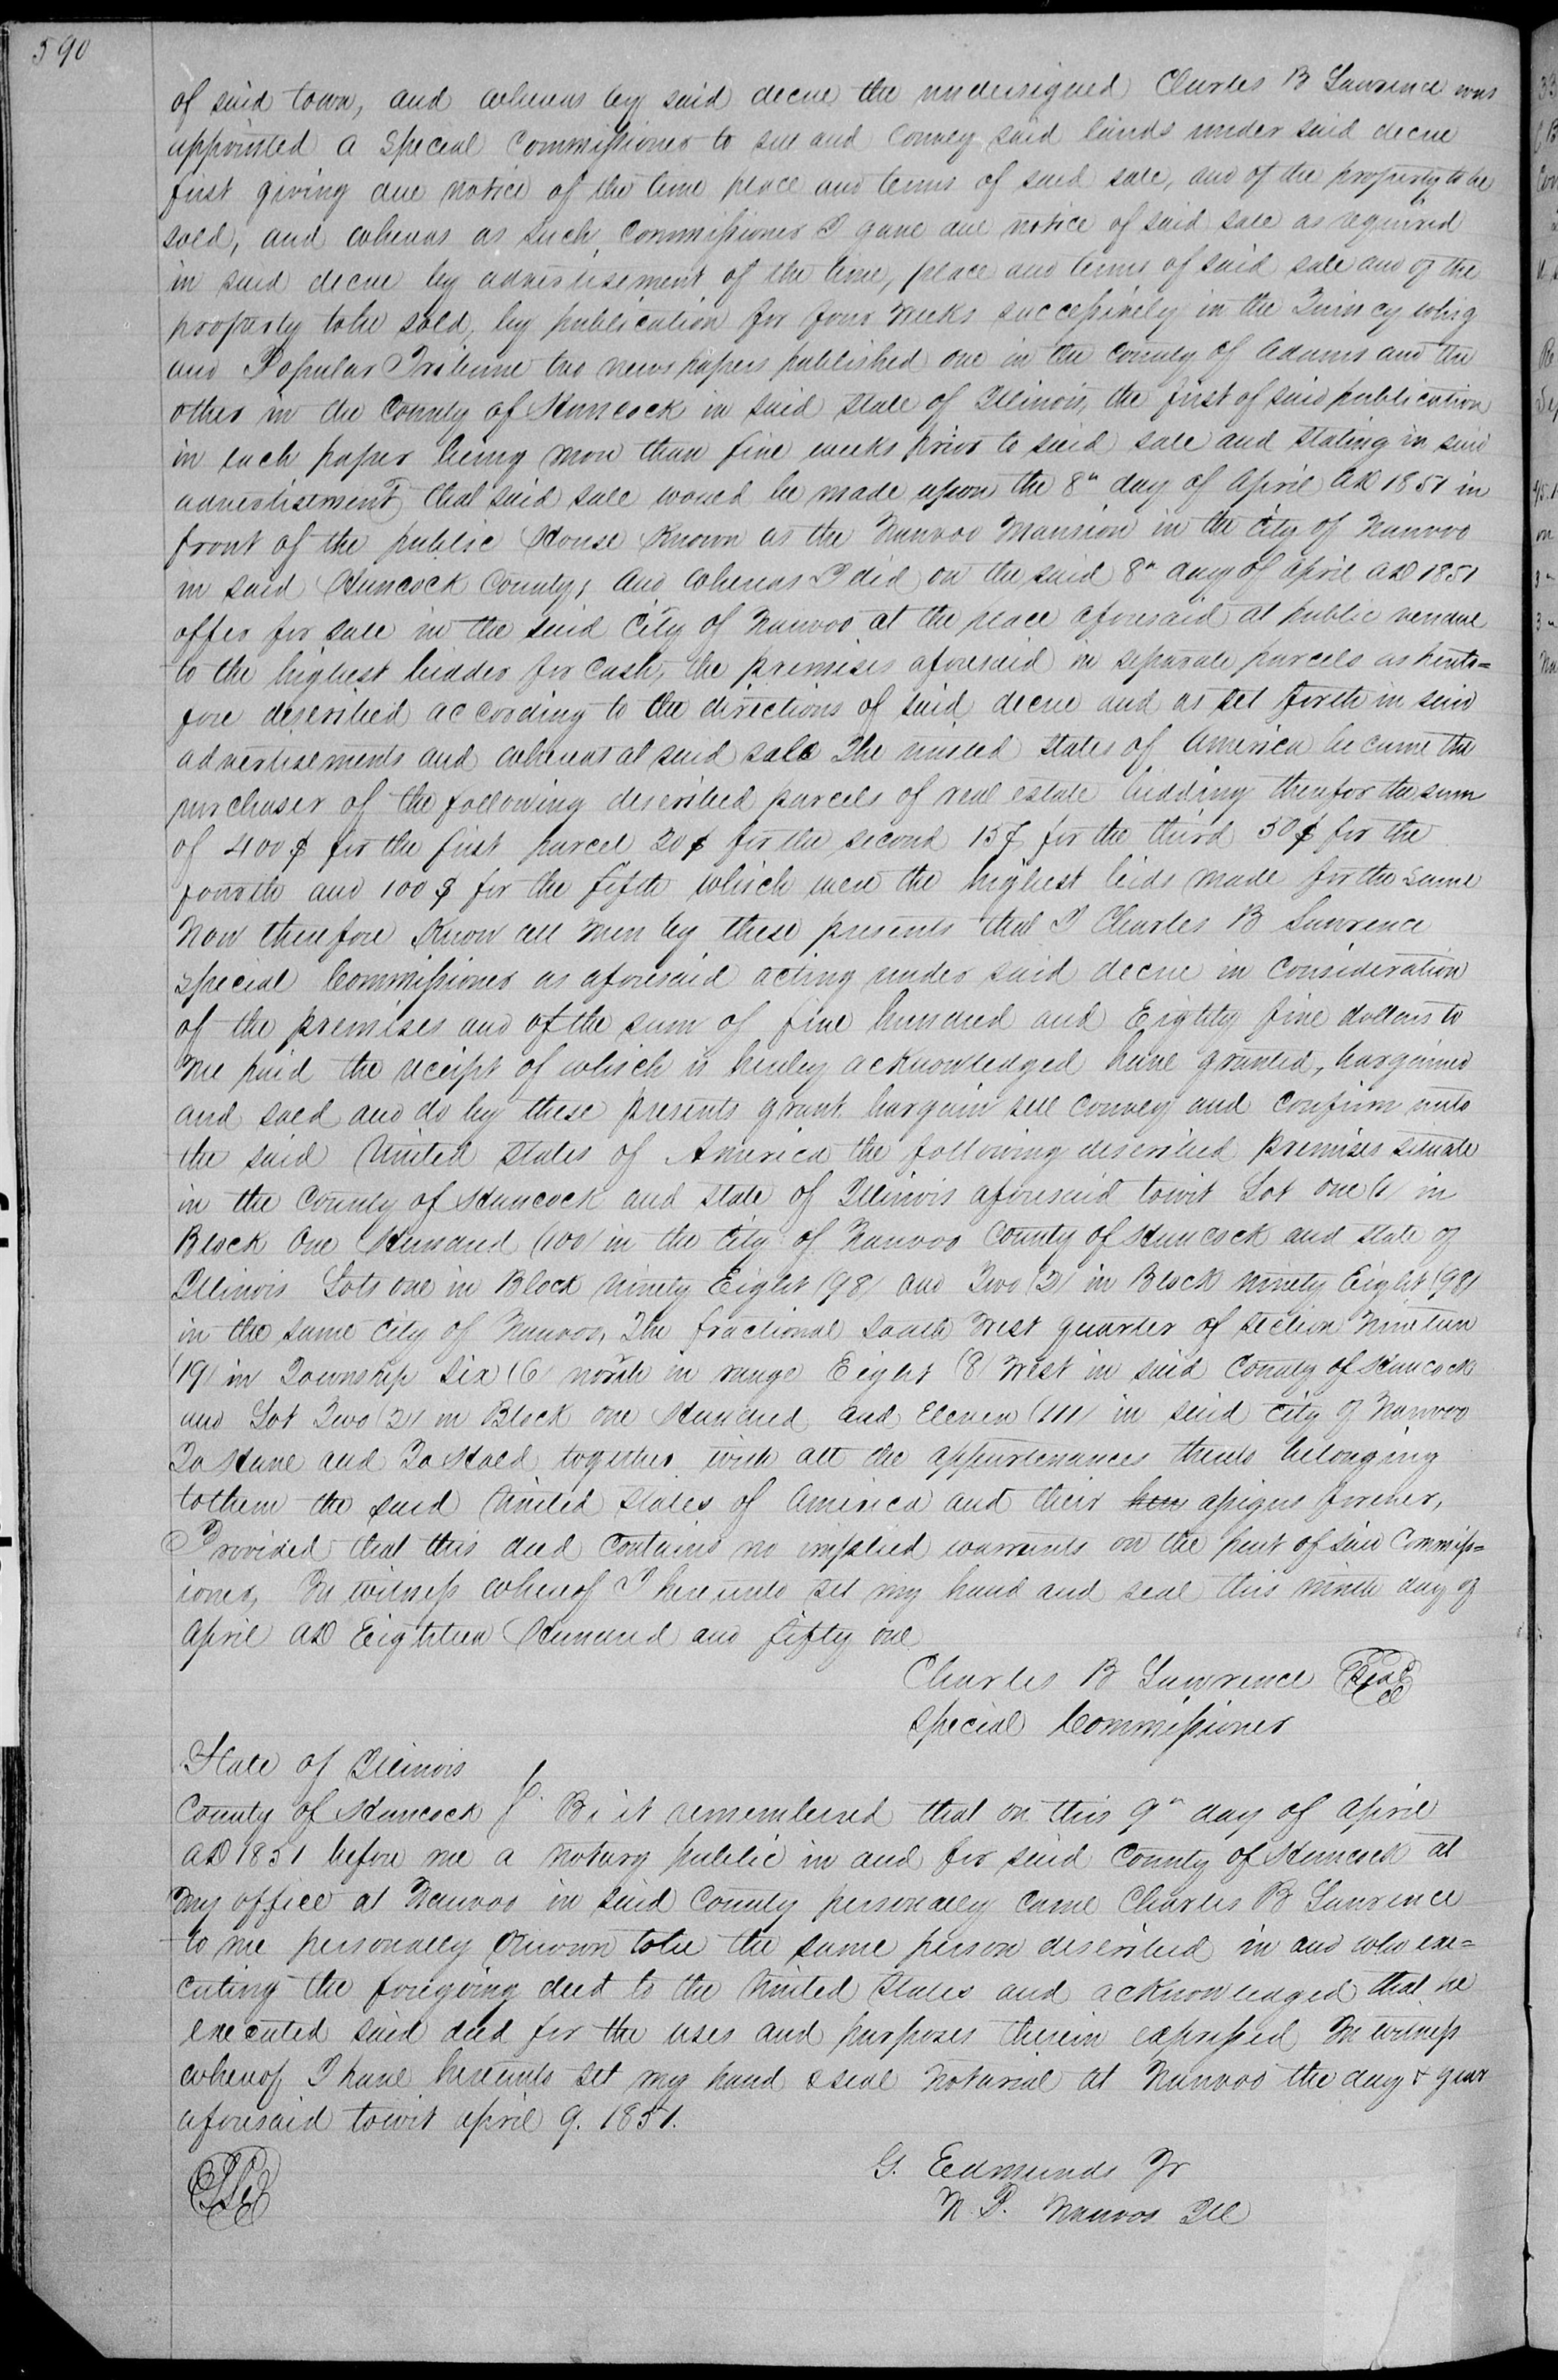 590
of said town, and whereas by said decree the undersigned Charles B Lawrence was
appointed a Special Commissioner to sell and Convey said lands under said decree
first giving due notice of the time place and terms of said sale, and of the property to be
sold, and whereas as such Commissioner I gave due notice of said sale as required
in said decree by advertisement of the time, place and terms of said sale and of the
property to be sold, by publication for four weeks successively in the Quincy whig
and Popular Tribune two newspapers published one in the county of Adams and the
other in the County of Hancock in said State of Illinois, the first of said publication
in each paper being more than five weeks prior to said sale and stating in said
advertisement that said sale would be made upon the 8th day of April AD 1851 in
front of the public House Known as the Nauvoo Mansion in the City of Nauvoo
in said Hancock County, and whereas I did on the said 8th day of April AD 1851
offer for sale in the said City of Nauvoo at the place aforesaid at public vendue
to the highest bidder for cash, the premises aforesaid in separate parcels as hereto=
fore described according to the directions of said decree and as set forth in said
advertisements and whereas at said sale The united States of America became the
purchaser of the following described parcels of real estate bidding therefor the sum
of 400 $ for the first parcel 20 $ for the second 15 $ for the third 50 $ for the
fourth and 100 $ for the fifth which were the highest bids made for the same
Now therefore Know all Men by these presents that I Charles B Lawrence
special Commissioner as aforesaid acting under said decree in consideration
of the premises and of the sum of five hundred and Eighty five dollars to
me paid the receipt of which is hereby acknowledged have granted, bargained
and sold and do by these presents grant bargain sell convey and confirm unto
the said United States of America the following described premises situate
in the County of Hancock and State of Illinois aforesaid towit Lot one (1) in
Block One Hundred (100) in the City of Nauvoo County of Hancock and state of
Illinois Lots one in Block Ninety Eight (98) and Two (2) in Block Ninety Eight (98)
in the same City of Nauvoo, The fractional South West quarter of section Nineteen
(19) in Township Six (6) north in range Eight (8) West in said County of Hancock
and Lot Two (2) in Block one Hundred and Eleven (111) in said City of Nauvoo
To Have and To Hold together with all the appurtenances thereto belonging
to them the said United States of America and their assigns forever,
Provided that this deed contains no implied warrants on the part of said Commiss=
ioner, In witness whereof I hereunto set my hand and seal this ninth day of
April AD Eighteen Hundred and fifty one
Charles B Lawrence Seal
Special Commissioner
State of Illinois
County of Hancock } Be it remembered that on this 9th day of April
AD 1851 before me a Notary public in and for said County of Hancock at
my office at Nauvoo in said County personally came Charles B Lawrence
to me personally Known to be the same person described in and who exe=
cuting the foregoing deed to the United States and acknowledged that he
executed said deed for the uses and purposes therein expressed In witness
whereof I have hereunto set my hand & seal Notarial at Nauvoo the day & year
aforesaid towit April 9. 1851.
G. Edmunds Jr
N. P. Nauvoo Ill